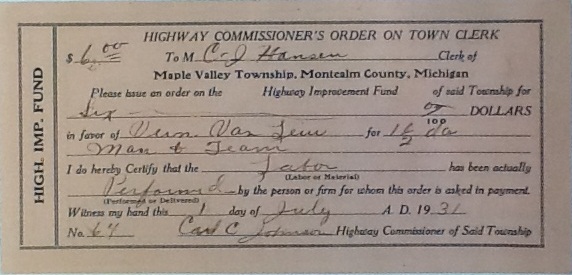 HIGH. IMP. FUND
HIGHWAY COMMISSIONER'S ORDER ON TOWN CLERK
$ 6.00 To M C-J Hansen Clerk of
Maple Valley Township, Montcalm County, Michigan
Please issue an order on the Highway Improvement Fund of said Township for
Six 00/100 DOLLARS
in favor of Vern Van for 1 1/2 da
Man & Team
I do hereby Certify that the Labor has been actually
(Labor or Material)
Performed by the person or firm for whom this order is asked in payment.
(Performed or Delivered)
Witness my hand this 1 day of July A. D. 1931
No. 67 Carl C Johnson Highway Commissioner of Said Township